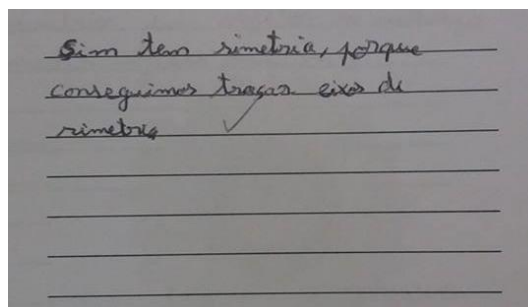 Sim tem simetria, porque
conseguimos traçar eixos de
simetria